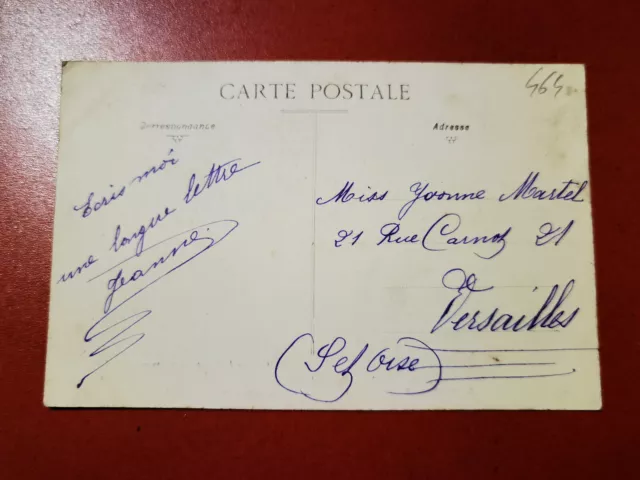 CARTE POSTALE
464
Correspondance
Adresse
Ecris moi
une longue lettre
Jeanne
Miss Yvonne Martel
21 Rue Carnot 21
Versailles
(S et Oise)